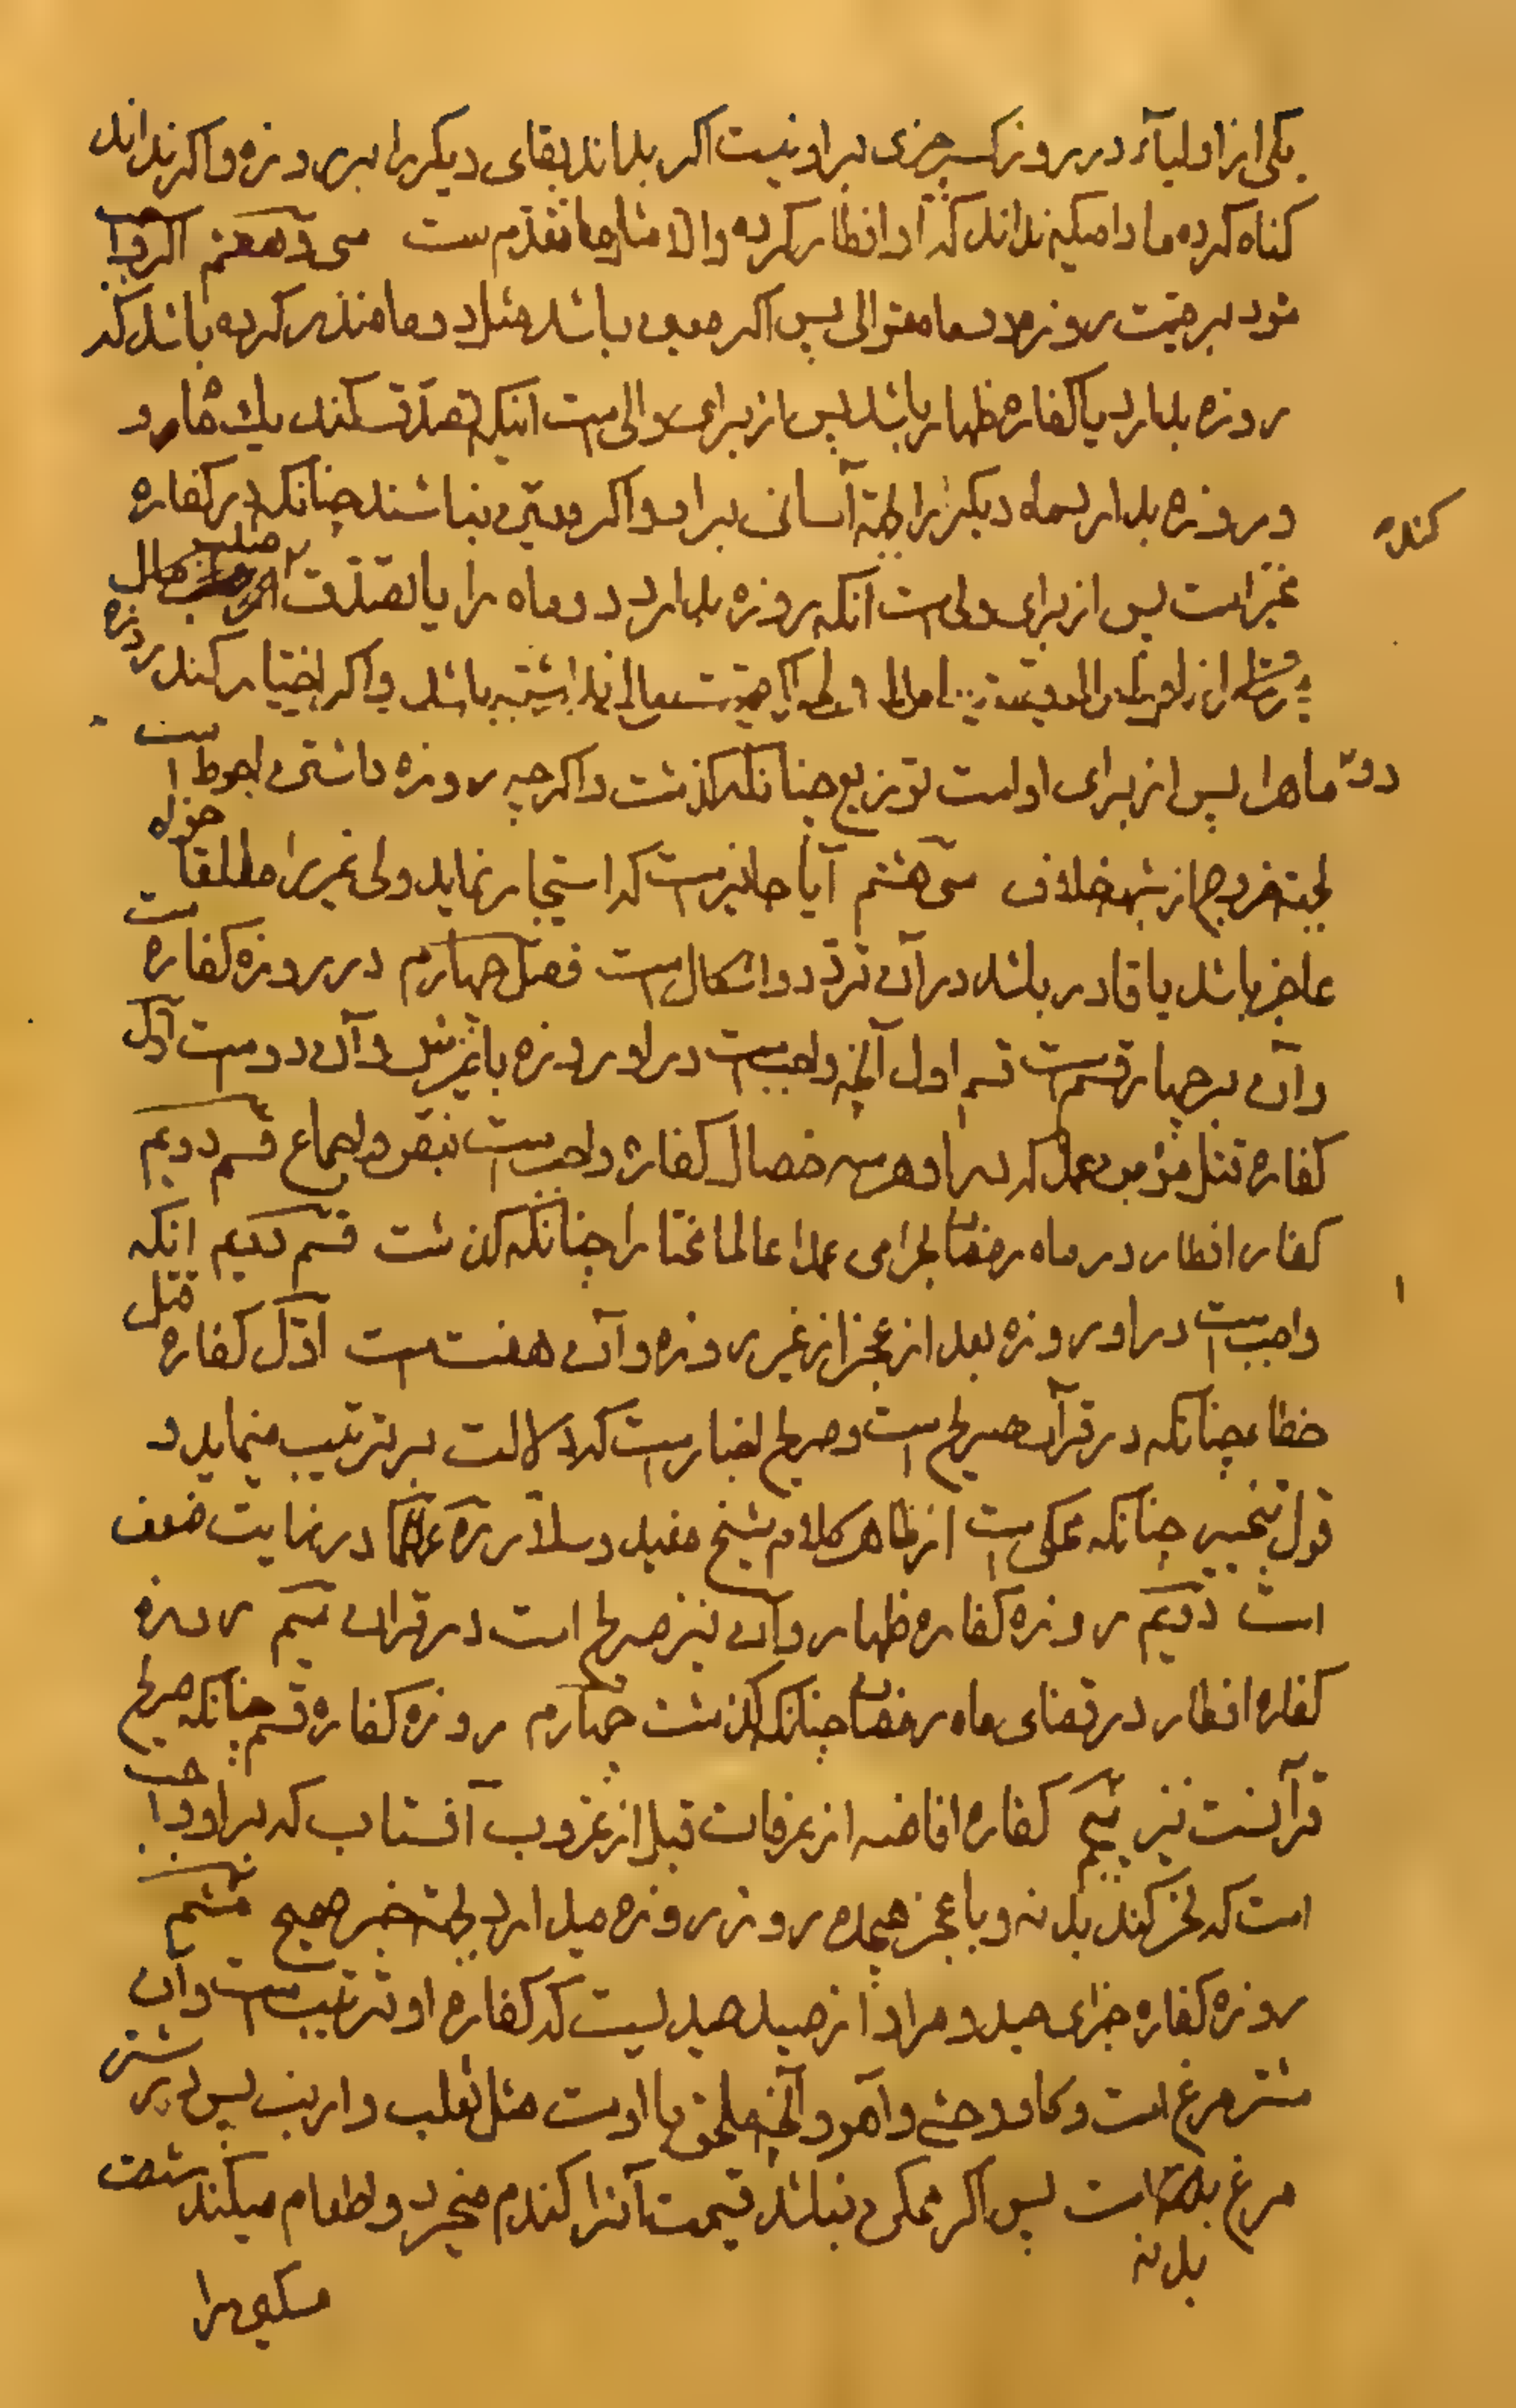 یکی از اولیآء در روز کسر چیزی بر او نیست اکر بداند بقای دیکر را بر روزه و اکر نداند
کناه کرده مادامیکه نداند که آ او افطار کرده والا مثل ما تقدم ست سی و هفتم اکر واجب
شود بر میت روزه دو ماه متوالی پس اکر معین باشد مثل دو ماه نذر کرده باشد که
روزه بدارد یا کفاره ظهار باشد پس از برای والی است اینکه تصدق کند یك ماه رو
و روزه بدارد ماه دیکر را بجهة آسانی بر او و اکر معین نباشند چنانکه در کفاره
مخیر است پس از برای ولی است آنکه روزه بدارد دو ماه را یا تصدق از مال
کند
باشد و اکر اختیار کند روزه
دو ماه را پس از برای اوست توزیع چنانکه کذشت و اکر چه روزه داشتن احوط است
بجهة خروج از شبه خلاف سی هشتم آیا جایز است که استیجار نماید ولی غیر را مطلقا خواه
عاجز باشد یا قادر باشد در آن تردد و اشکال است فصل چهارم در روزه کفاره ست
و آن بر چهار قسم است قسم اول آنچه واجب است در او روزه با غیرش و آن دو است اول
کفاره قتل مؤمن عمدا که بر او هر سه خصال کفاره واجب است بنص و اجماع قسم دویم
کفاره افطار در ماه رمضان بحرامی عمدا عالما مختارا چنانکه کذشت قسم دویم انکه
واجب است در او روزه بعد از عجز از غیر روزه و آن هفت است اول کفاره قتل
خطاء چنانکه در قرآن صریح است و صریح اخبار است که دلالت بر ترتیب مینماید و
قول تخییر چنانکه محکی است از ظاهر کلام شیخ مفید و سلار ره در نهایت ضعف
است دویم روزه کفاره ظهار و آن نیز صریح است در قران سیم روزه
کفاره افطار در قضای ماه رمضان چنانکه کذشت چهارم روزه کفاره قسم چنانکه صریح
قرآنست نیز پنجم کفاره افاضه از عرفات قبل از غروب آفتاب که بر او واجب
است که نحر کند بدنه و با عجز هیجده روز روزه میدارد بجهة خبر صحیح ششم
روزه کفاره جزای صید و مراد از صید صیدیست که کفاره او ترتیب است و آن
شتر مرغ است و کاو وحشی و آهو و آنچه ملحق با اوست مثل ثعلب و ارنب پس در شتر
مرغ بدنه است پس اکر ممکن نباشد قیمت آنرا کندم میخرد و اطعام میکند شصت
بدنه
مسکین را